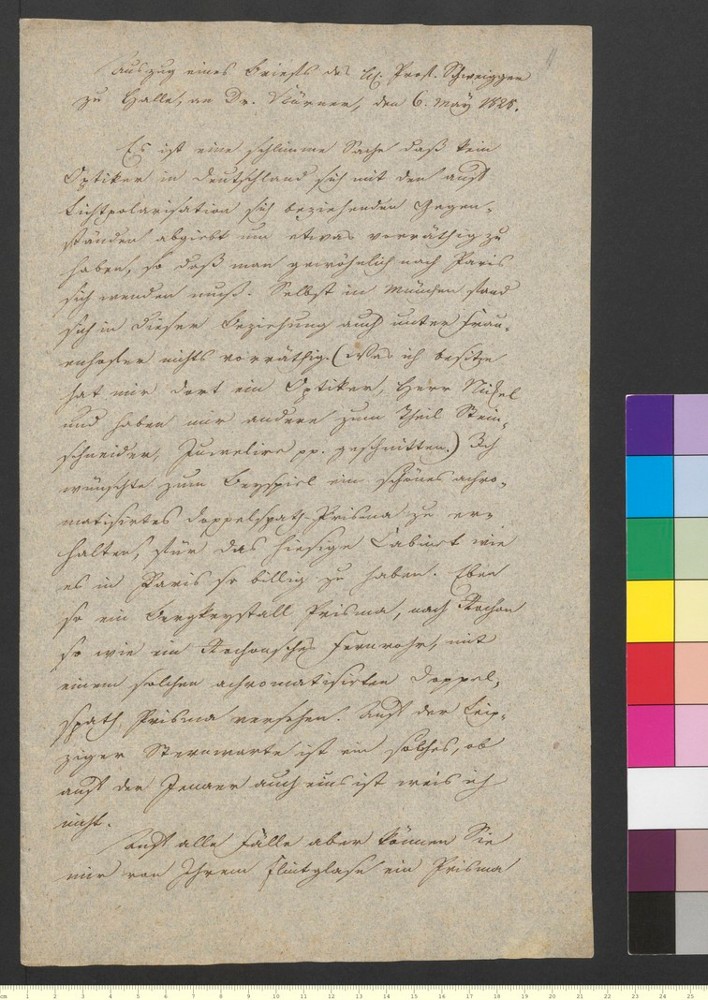 Auszug eines Briefs des H. Prof. Schweigger
zu Halle, an Dr. Körner, den 6. May 1828.
Es ist eine schlimme Sache daß kein
Optiker in Deutschland sich mit den auf
Lichtpolarisation sich beziehenden Gegen-
ständen abgiebt um etwas vorräthig zu
haben, so daß man gewöhnlich nach Paris
sich wenden muß. Selbst in München stand
sich in dieser Beziehung auch unter Frau-
enhofer nichts vorräthig. (Was ich besitze
hat mir dort ein Optiker, Herr Nickel
und haben mir andere zum Theil Stein-
schneider, Juwelire pp. geschnitten.) Ich
wünschte zum Beyspiel ein schönes achro-
matisirtes Doppelspath-Prisma zu er-
halten, für das hiesige Cabinet wie
es in Paris so billig zu haben. Eben
so ein Bergkrystall Prisma, nach Rochon
so wie ein Rochonsches Fernrohr, mit
einem solchen achromatisirten Doppel-
spath Prisma versehen. Auf der Leip-
ziger Sternwarte ist ein solches, ob
auf der Jenaer auch eins ist weis ich
nicht.
Auf alle Fälle aber können Sie
mir von Ihrem Flintglase ein Prisma
cm 1 2 3 4 5 6 7 8 9 10 11 12 13 14 15 16 17 18 19 20 21 22 23 24 25